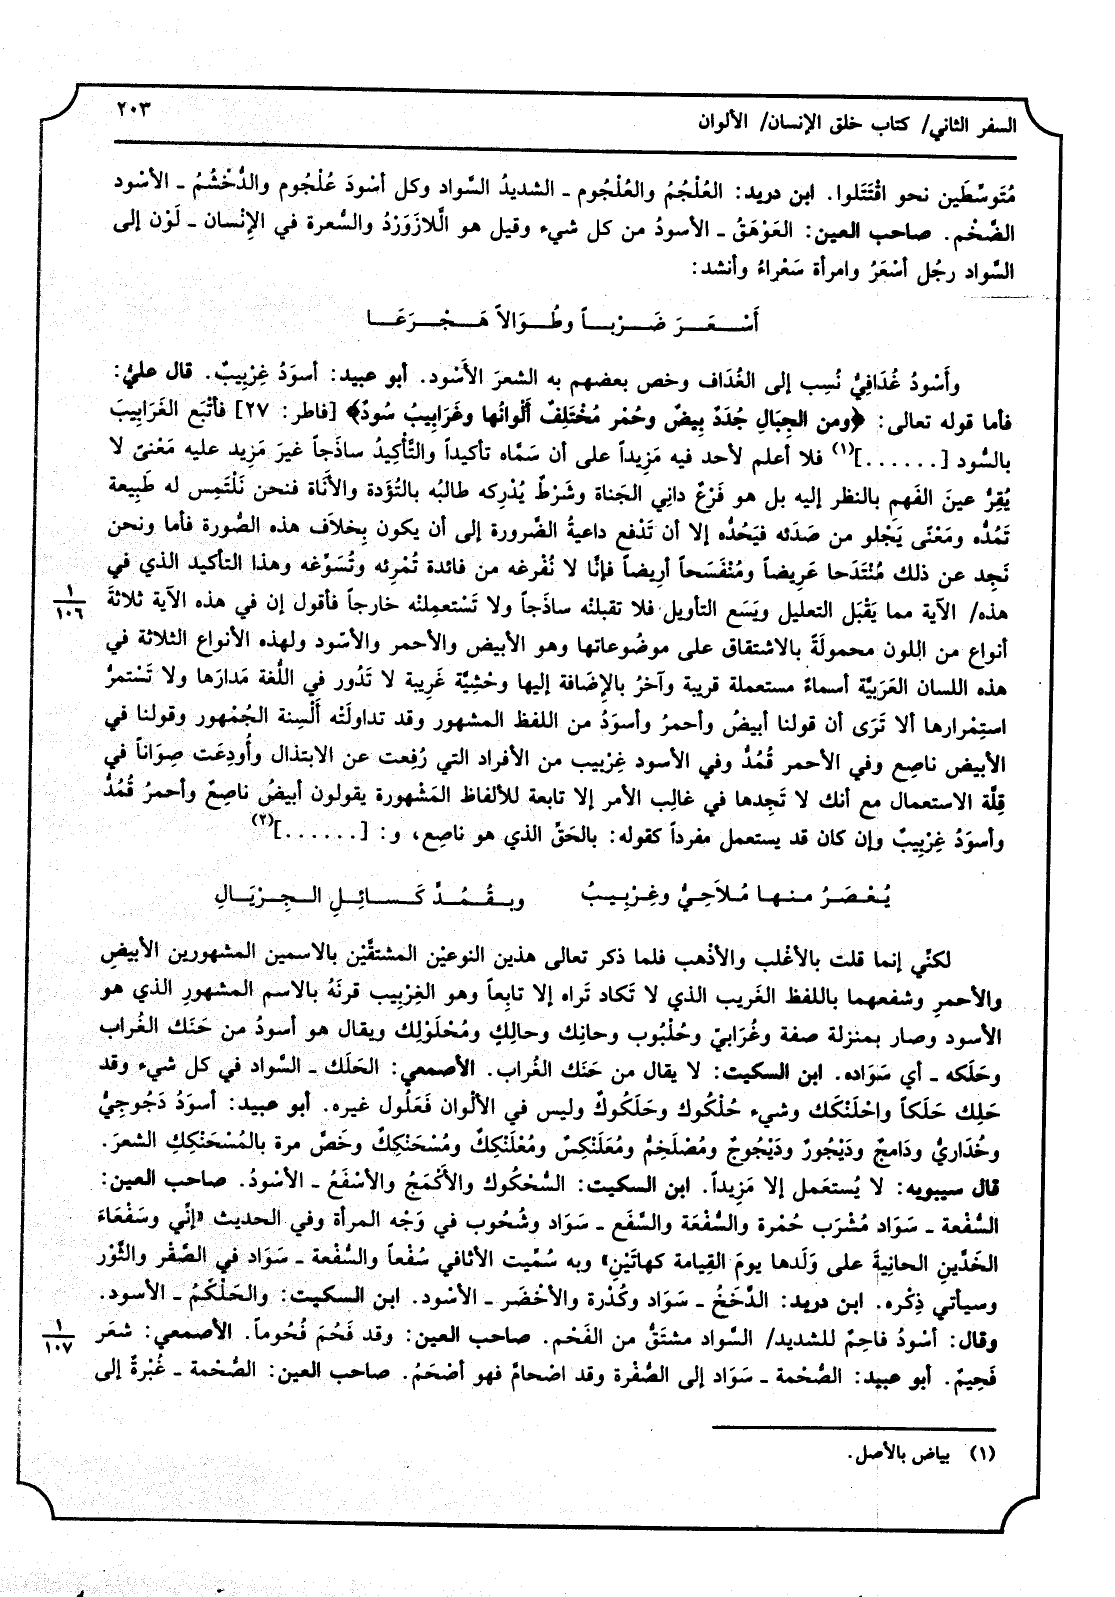 السفر الثاني/ كتاب خلق الإنسان/ الألوان
٢٠٣
مُتَوسِّطَين نحو اقْتَتَلوا. ابن دريد: العُلْجُمُ والعُلْجُوم ـ الشديدُ السَّواد وكل أسْودَ عُلْجُوم والدُّخْشُمُ ـ الأسْود
الضَّخْم. صاحب العين: العَوْهَقُ ـ الأسودُ من كل شيء وقيل هو الَّلازَوَرْدُ والسُّعرة في الإنْسان ـ لَوْن إلى
السَّواد رجُل أسْعَرُ وامرأة سَعْراءُ وأنشد:
أَسْـــعَـــرَ ضَـــرْبـــاً وطُـــوَالاً هَـــجْـــرَعَـــا
وأَسْودُ غُدَافِيٌّ نُسِب إلى الغُدَاف وخص بعضهم به الشعرَ الأَسْود. أبو عبيد: أسوَدُ غِرْبِيبٌ. قال عليٌّ:
فأما قوله تعالى: ﴿ومن الجِبَالِ جُدَدٌ بِيضٌ وحُمْر مُخْتَلِفٌ أَلْوانُها وغَرَابِيبُ سُودٌ﴾ [فاطر: ٢٧] فأتْبَع الغَرَابِيبَ
بالسُّود [......](١) فلا أعلم لأحد فيه مَزِيداً على أن سَمَّاه تأكيداً والتَّأْكِيدُ ساذَجاً غيرَ مَزِيد عليه مَعْنىً لا
يُقِرُّ عينَ الفَهم بالنظر إليه بل هو فَرْعٌ دانِي الجَناة وشَرْطٌ يُدْرِكه طالبُه بالتُؤَدة والأَنَاة فنحن نَلْتَمِس له طَبِيعة
تَمُدُّه ومَعْنًى يَجْلو من صَدَئه فيَحُدُّه إلا أن تَدْفع داعيةُ الضَّرورة إلى أن يكون بِخلاَف هذه الصُّورة فأما ونحن
نَجِد عن ذلك مُنْتَدَحا عَرِيضاً ومُنْفَسَحاً أرِيضاً فإنَّا لا نُفْرغه من فائدة تُمْرِئه وتُسَوِّغه وهذا التأكيد الذي في
١
١٠٦
هذه/ الآية مما يَقْبَل التعليل ويَسَع التأويل فلا تقبلنْه ساذَجاً ولا تَسْتعمِلنْه خارجاً فأقول إن في هذه الآية ثلاثةَ
أنواع من اللون محمولَةً بالاشتقاق على موضُوعاتها وهو الأبيض والأحمر والأسْود ولهذه الأنواع الثلاثة في
هذه اللسان العَرَبيَّة أسماءً مستعملة قريبة وآخرُ بالإضَافة إليها وحْشِيَّة غَرِيبة لا تَدُور في اللُّغة مَدارَها ولا تَسْتمرُّ
استِمْرارها ألا تَرَى أن قولنا أبيضُ وأحمرُ وأسوَدُ من اللفظ المشهور وقد تداولَتْه ألْسِنة الجُمْهور وقولنا في
الأبيض ناصِع وفي الأحمر قُمُدٌّ وفي الأسود غِرْبيب من الأفراد التي رُفِعت عن الابتذال وأُودِعَت صِوَاناً في
قِلَّة الاستعمال مع أنك لا تَجِدها في غالِب الأمر إلا تابعة للألفاظ المَشْهورة يقولون أبيضُ ناصِعٌ وأحمرُ قُمُدٌّ
وأسوَدُ غِرْبِيبٌ وإن كان قد يستعمل مفرداً كقوله: بالحَقِّ الذي هو ناصِع، و: [......](٢)
يُـعْـصَـرُ مـنـهـا مُـلاَحِيٌّ وغِرْبِـيـبُ     وبـقُـمُـدَّ كَـسـائِـلِ الـجِـرْيَـالِ
لكنِّي إنما قلت بالأغْلب والأذْهب فلما ذكر تعالى هذين النوعيْن المشتقَّيْن بالاسمين المشهورين الأبيضِ
والأحمرِ وشفعهما باللفظ الغَريب الذي لا تَكاد تَراه إلا تابِعاً وهو الغِرْبِيب قرنَهُ بالاسم المشهورِ الذي هو
الأسود وصار بمنزلة صفة وغُرَابيّ وحُلْبُوب وحانِك وحالِكٍ ومُحْلَوْلِك ويقال هو أسودُ من حَنَك الغُراب
وحَلَكه ـ أي سَوَاده. ابن السكيت: لا يقال من حَنَك الغُراب. الأصمعي: الحَلَك ـ السَّواد في كل شيء وقد
حَلِك حَلَكاً واحْلَنْكَك وشيء حُلْكُوك وحَلَكُوكٌ وليس في الألْوان فَعَلُول غيره. أبو عبيد: أسوَدُ دَجُوجِيٌّ
وخُدَاريٌّ ودَامجٌ ودَيْجُورٌ ودَيْجُوجٌ ومُصْلَخِمٌّ ومُعَلَنْكِسٌ ومُعْلَنْكِكٌ ومُسْحَنْكِكٌ وخَصَّ مرة بالمُسْحَنْكِكِ الشعرَ.
قال سيبويه: لا يُستعَمل إلا مَزِيداً. ابن السكيت: السُّحْكُوك والأَكْمَجُ والأسْفَعُ ـ الأسْودُ. صاحب العين:
السُّفْعة ـ سَوَاد مُشْرَب حُمْرة والسُّفْعَة والسَّفَع ـ سَوَاد وشُحُوب في وَجْه المرأة وفي الحديث «إنِّي وسَفْعَاءَ
الخَدَّينِ الحانِيةَ على وَلَدها يومَ القِيامة كهاتَيْنِ» وبه سُمِّيت الأثافي سُفْعاً والسُّفْعة ـ سَوَاد في الصَّقْر والثَّوْر
وسيأتي ذِكْره. ابن دريد: الدَّخَخُ ـ سَوَاد وكُدْرة والأخْضَر ـ الأسْود. ابن السكيت: والحَلْكَمُ ـ الأسود.
١
١٠٧
وقال: أسْودُ فاحِمٌ للشديد/ السَّواد مشتَقٌّ من الفَحْم. صاحب العين: وقد فَحُمَ فُحُوماً. الأصمعي: شعَر
فَحِيمٌ. أبو عبيد: الصُّحْمة ـ سَوَاد إلى الصُّفْرة وقد اصْحامَّ فهو أصْحَمُ. صاحب العين: الصُّحْمة ـ غُبْرةٌ إلى
(١) بياض بالأصل.